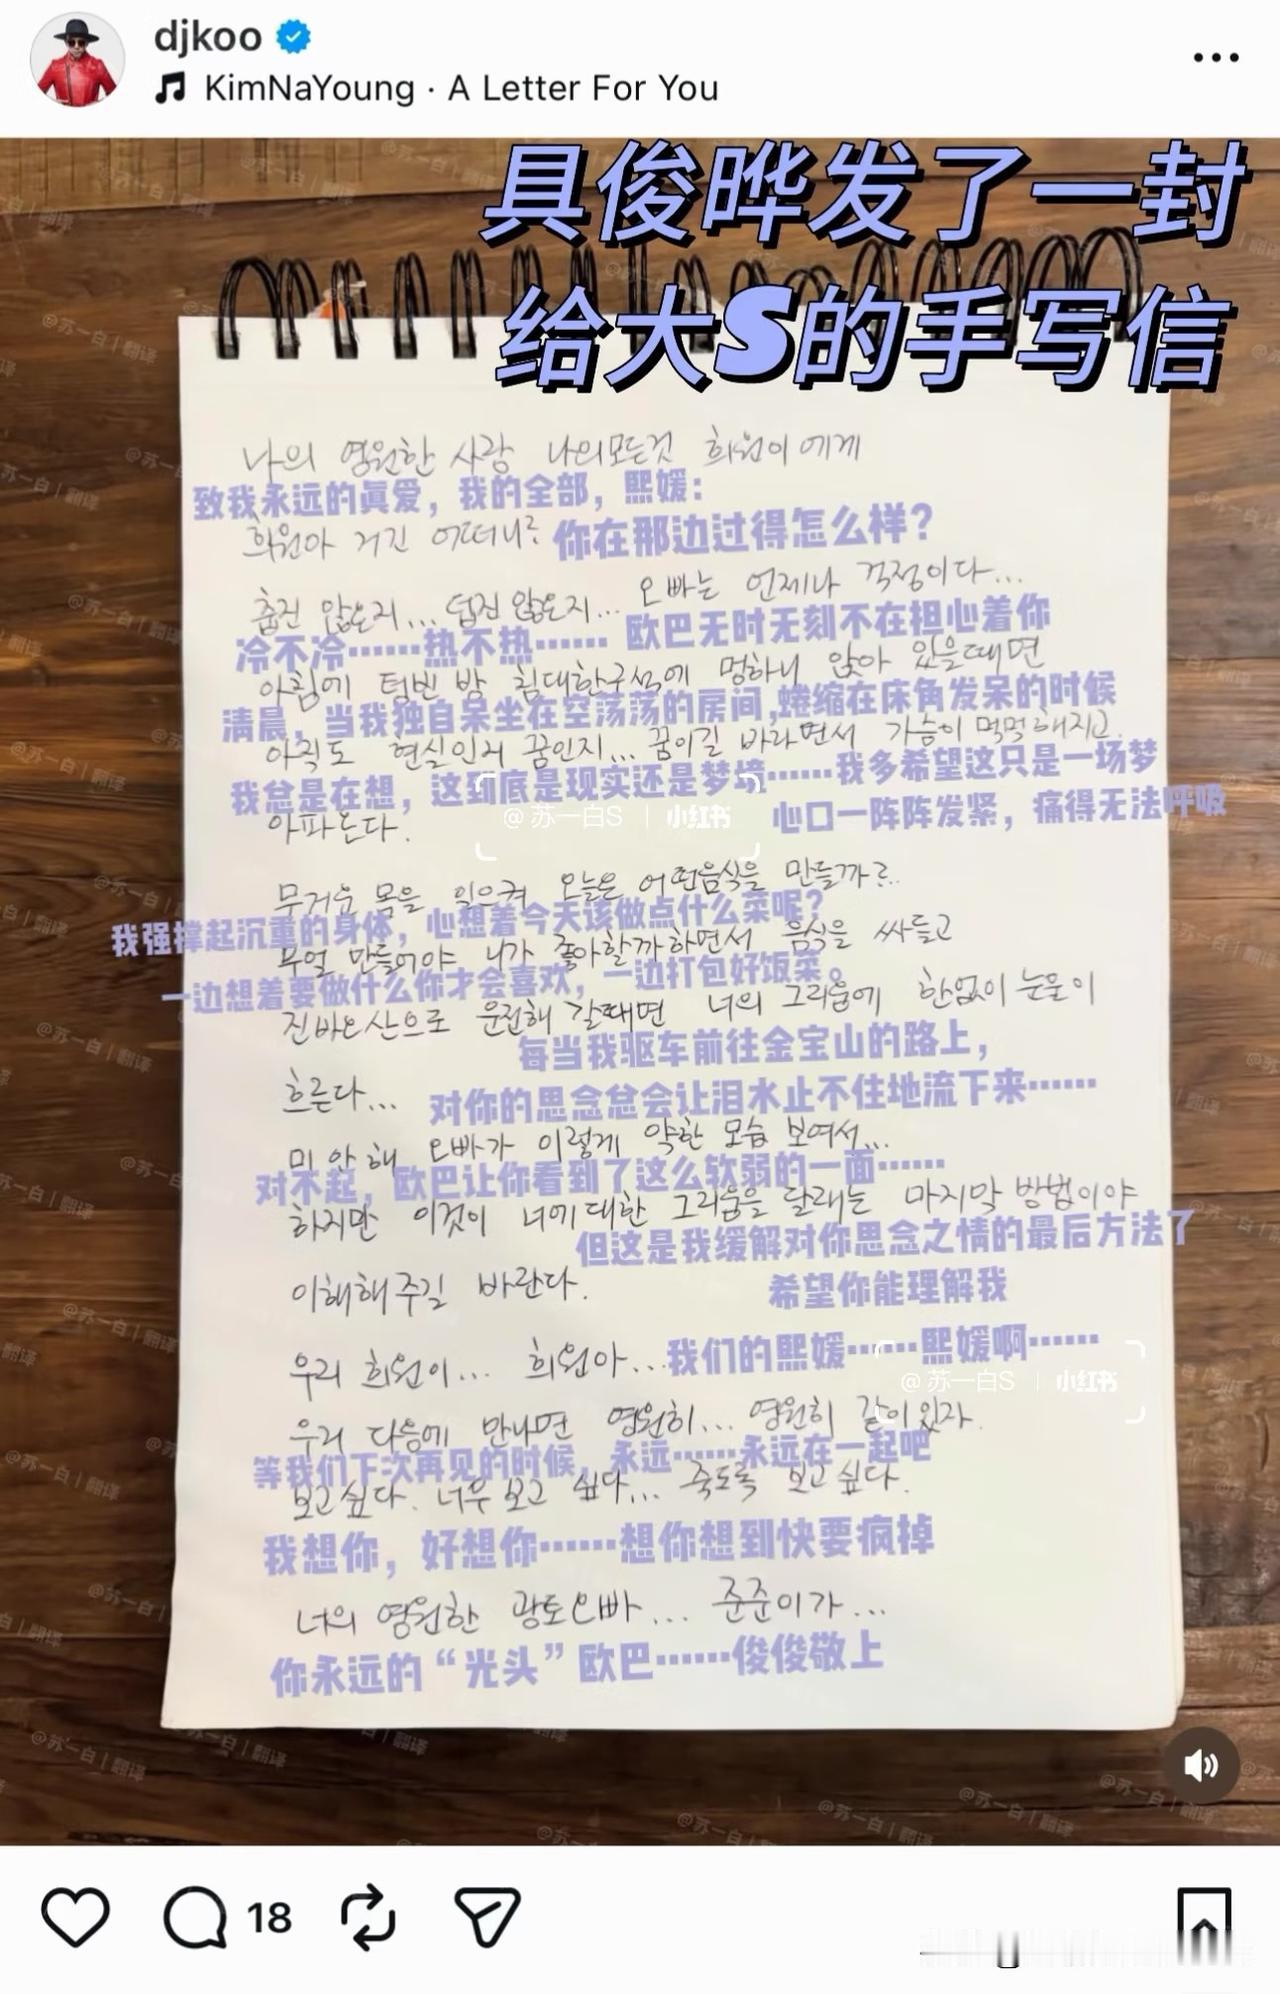 djkoo
KimNaYoung · A Letter For You
具俊晔发了一封
给大S的手写信
나의 영원한 사랑 나의모든것 희원이에게
致我永远的真爱，我的全部，熙媛：
희원아 거긴 어떠니?
你在那边过得怎么样？
춥진 않은지... 덥진 않은지... 오빠는 언제나 걱정이다...
冷不冷……热不热…… 欧巴无时无刻不在担心着你
아침에 텅빈 방 침대한구석에 멍하니 앉아 있을때면
清晨，当我独自呆坐在空荡荡的房间,蜷缩在床角发呆的时候
아직도 현실인지 꿈인지... 꿈이길 바라면서 가슴이 먹먹해지고
我总是在想，这到底是现实还是梦境……我多希望这只是一场梦
아파온다.
心口一阵阵发紧，痛得无法呼吸
@苏一白S | 小红书
무거운 몸을 일으켜 오늘은 어떤음식을 만들까?..
我强撑起沉重的身体，心想着今天该做点什么菜呢？
무얼 만들어야 니가 좋아할까하면서 음식을 싸들고
一边想着要做什么你才会喜欢，一边打包好饭菜。
진바오산으로 운전해 갈때면 너의 그리움에 한없이 눈물이
每当我驱车前往金宝山的路上，
흐른다...
对你的思念总会让泪水止不住地流下来……
미안해 오빠가 이렇게 약한 모습 보여서...
对不起，欧巴让你看到了这么软弱的一面……
하지만 이것이 너에대한 그리움을 달래는 마지막 방법이야
但这是我缓解对你思念之情的最后方法了
이해해주길 바란다.
希望你能理解我
우리 희원이... 희원아...
我们的熙媛……熙媛啊……
@苏一白S | 小红书
우리 다음에 만나면 영원히... 영원히 같이있자.
等我们下次再见的时候，永远……永远在一起吧
보고싶다. 너무 보고 싶다... 죽도록 보고싶다.
我想你，好想你……想你想到快要疯掉
너의 영원한 광토오빠... 준준이가...
你永远的“光头”欧巴……俊俊敬上
@苏一白 | 翻译
18